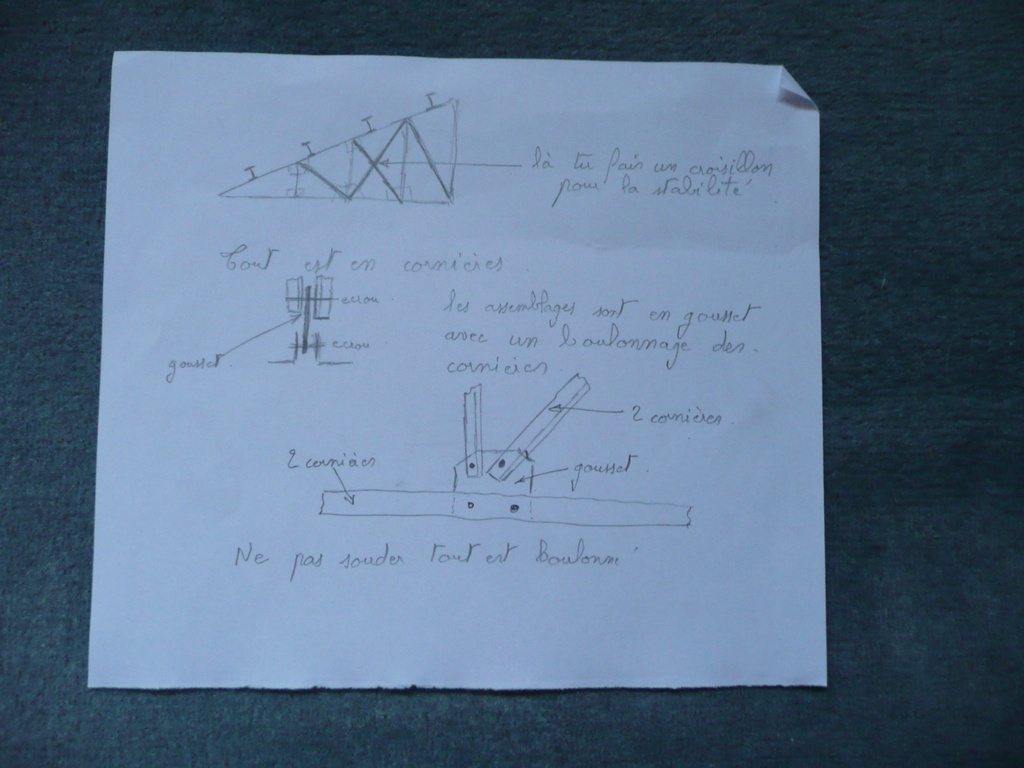 là tu fais un croisillon
pour la stabilité
Tout est en cornières.
ecrou.
ecrou.
gousset.
les assemblages sont en gousset
avec un boulonnage des
cornières.
2 cornières.
2 cornières
gousset.
Ne pas souder tout est boulonné